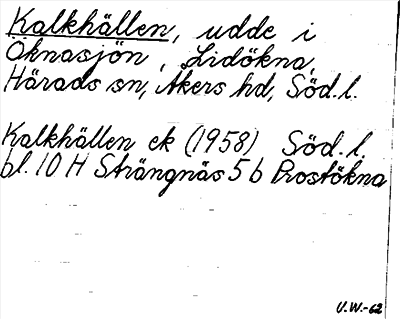 Kalkhällen, udde i
Öknasjön, Lidökna,
Härads sn, Åkers hd, Söd. l.
Kalkhällen ek (1958) Söd. l.
bl. 10 H Strängnäs 5 b Prostökna
U.W.-62